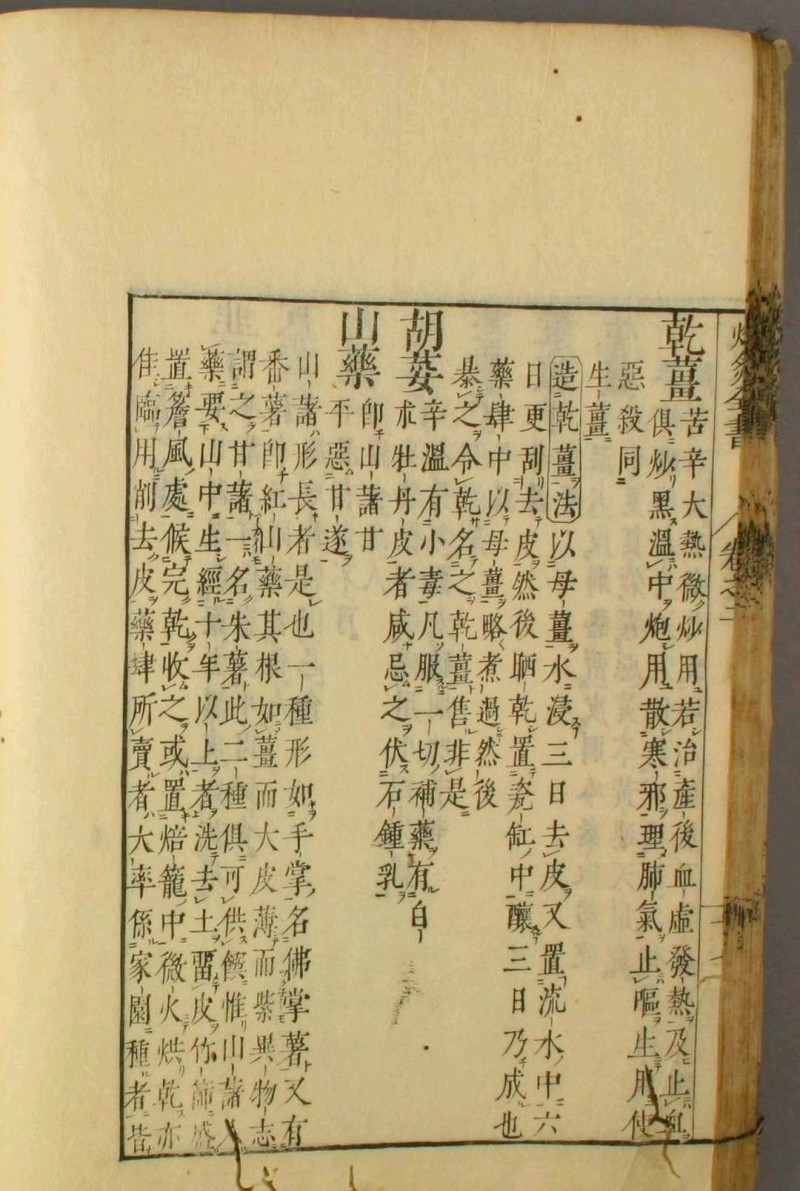 炮炙全書 卷之二
乾薑 苦辛大熱微炒用若治產後血虛發熱及止血
俱炒黑溫中炮用散寒邪理肺氣止嘔生用使
惡殺同
生薑
造乾薑法以母薑水浸三日去皮又置流水中六
日更刮去皮然後晒乾置瓷缸中釀三日乃成也
藥肆中以母薑略煮過然後
暴之令乾名之乾薑售非是
胡荽 辛溫有小毒凡服一切補藥有白
朮牡丹皮者咸忌之伏石鍾乳
山藥 卽山藷甘
平惡甘遂
山藷形長者是也一種形如手掌名佛掌薯又有
番薯卽紅山藥其根如薑而大皮薄而紫異物志
謂之甘藷一名朱薯此二種俱可供饌惟山藷入
藥要山中生經十年以上者洗去土畱皮竹篩盛
置簷風處候完乾收之或置焙籠中微火烘乾亦
佳臨用削去皮藥肆所賣者大率係家園種者皆